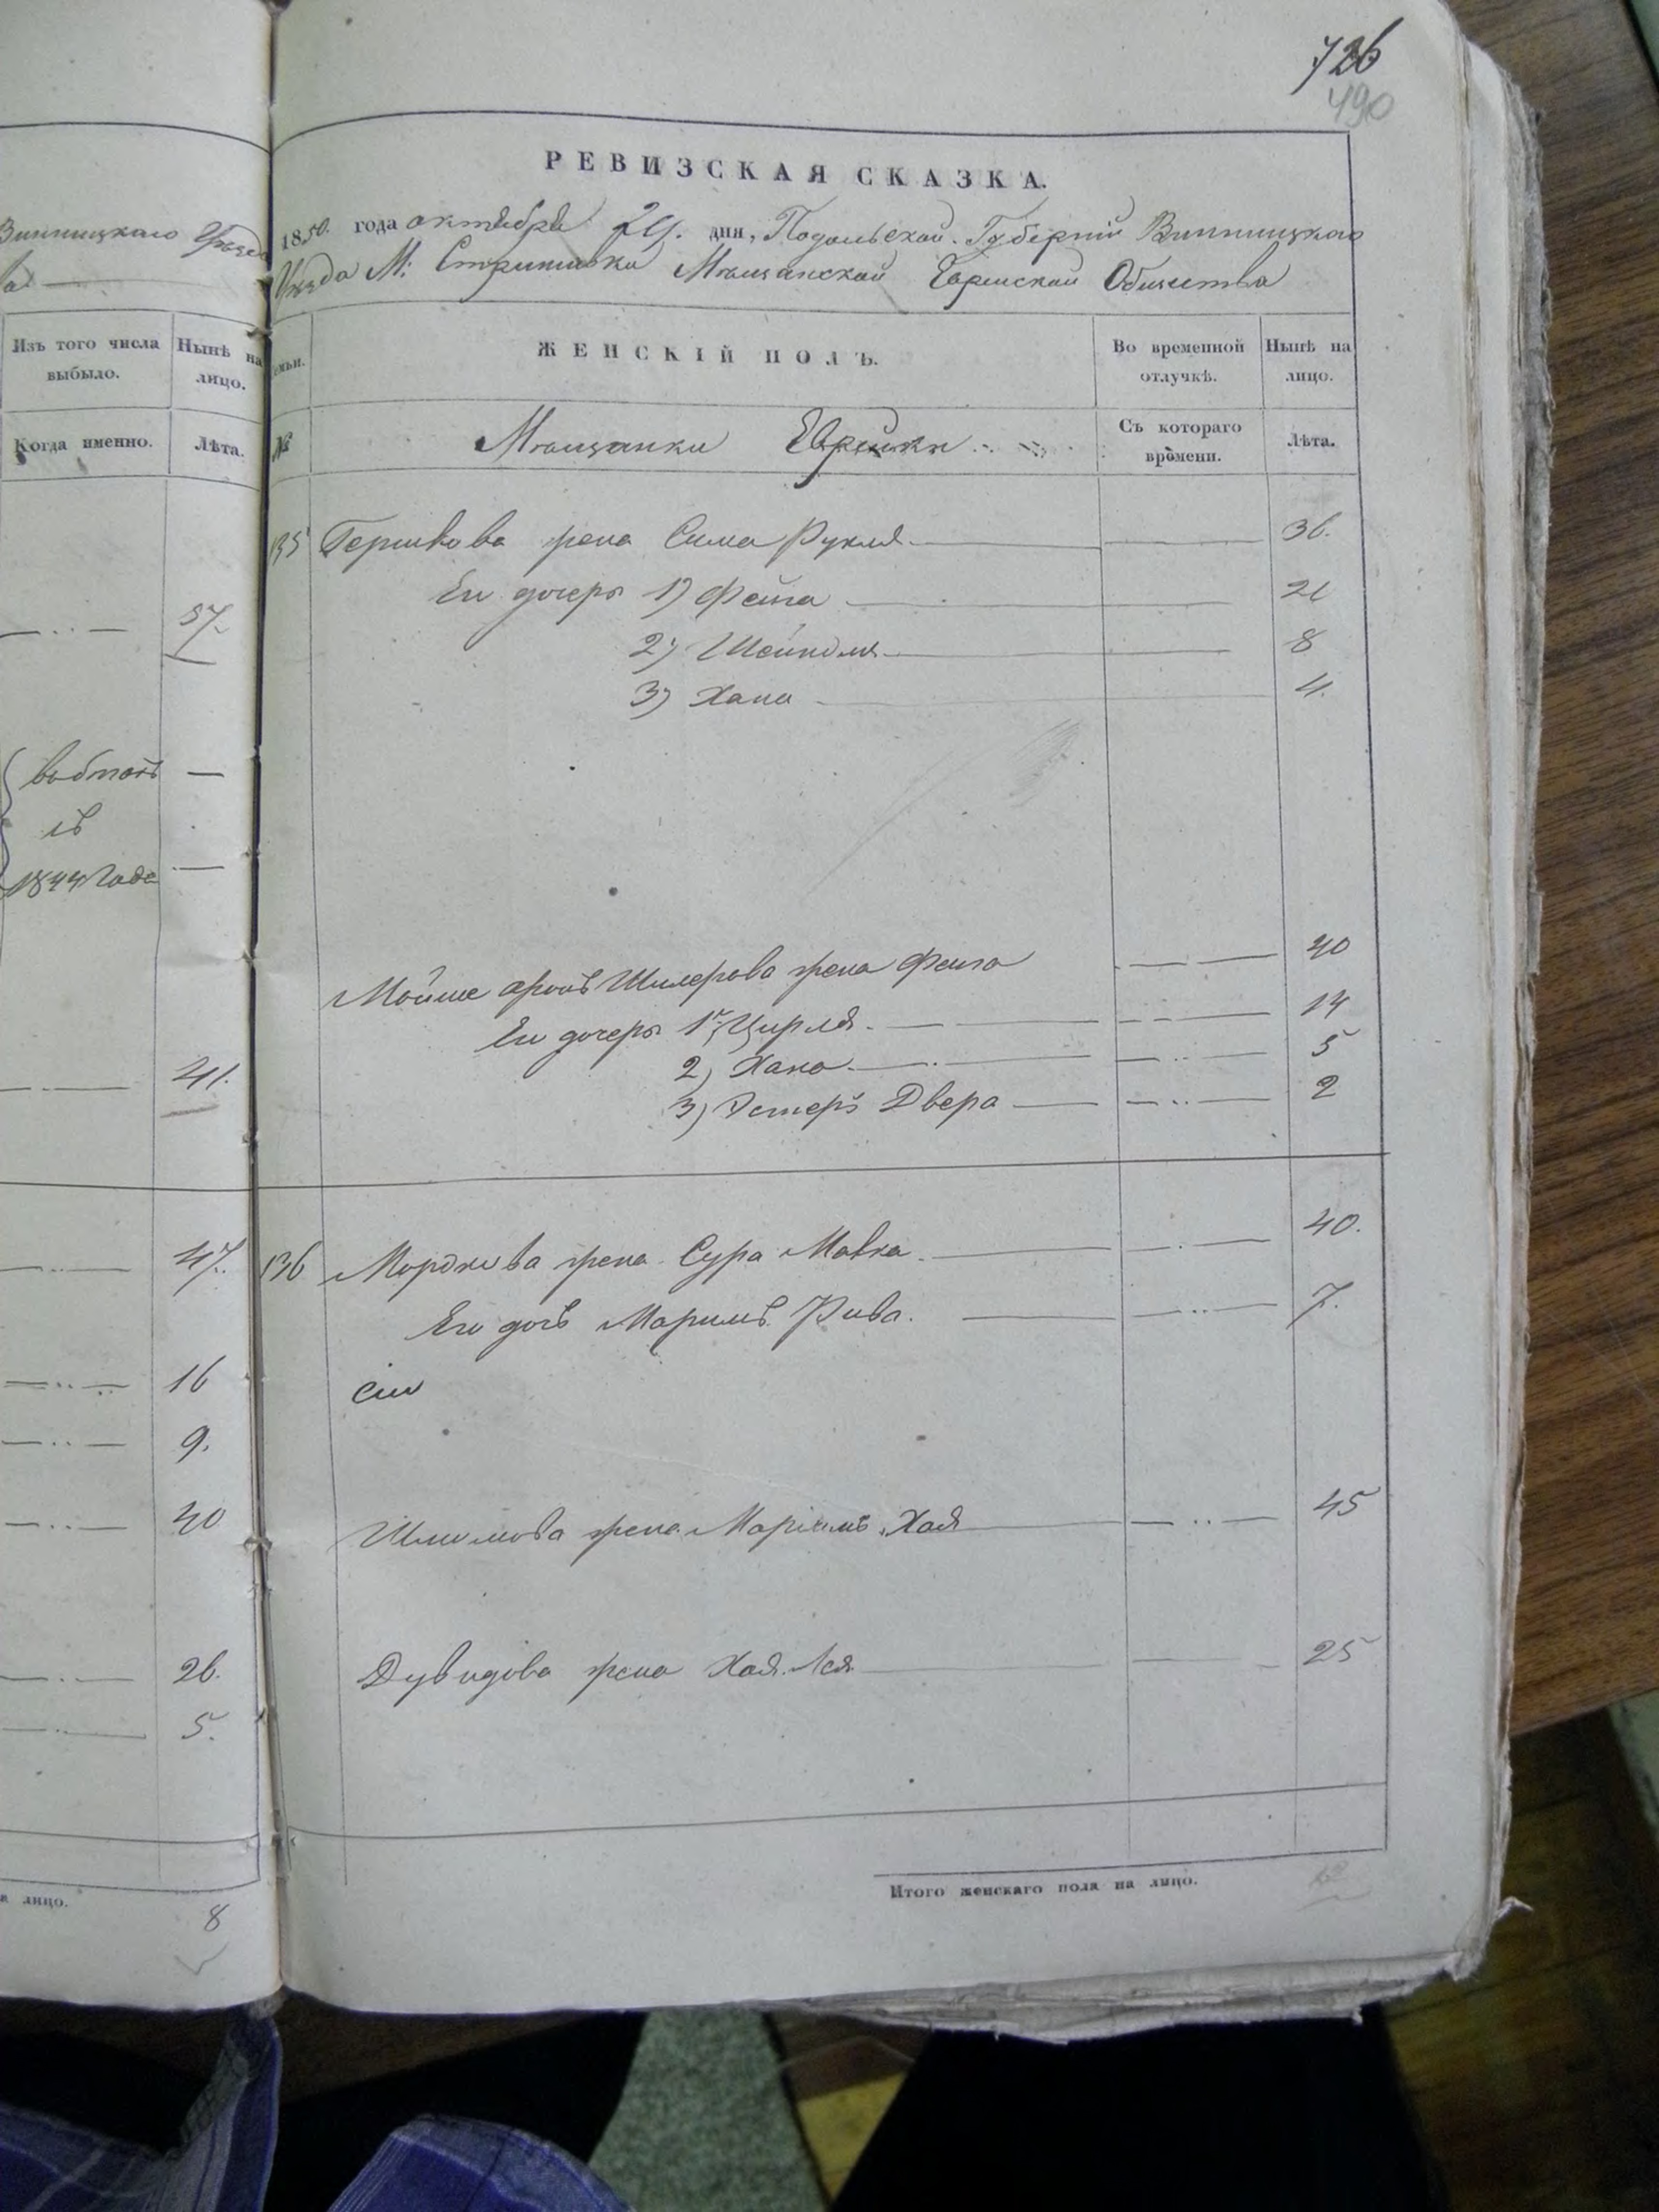 Винницкаго Уѣзд
Изъ того числа выбыло.
Нынѣ на лицо.
Когда именно.
Лѣта.
57.
—
въ
1844 Года
—
41.
47.
16
9.
40
26.
5.
а лицо.
8
726
490
РЕВИЗСКАЯ СКАЗКА.
1850. года октября 24. дня, Подольской Губерніи Винницкаго
Уѣзда М: Стрижавки Мѣщанскаго Еврейскаго Общества
емьи.
ЖЕНСКІЙ ПОЛЪ.
Во временной отлучкѣ.
Нынѣ на лицо.
№
Мѣщанки Еврейки
Съ котораго времени.
Лѣта.
135 Гершкова жена Сима Рухля 36.
Ея дочери 1) Фейга 21
2) Шейндля 8
3) Хана 4.
Мойше Аронъ Шмерова жена Фейга 40
Ея дочери 1) Цирля 14
2) Хана 5
3) Эстеръ Двера 2
136 Мордкова жена Сура Малка 40.
Его дочь Маримъ Рива. 7.
Шлиомова жена Маріамъ Хая 45
Дувидова жена Хая Лея 25
Итого женскаго пола на лицо.